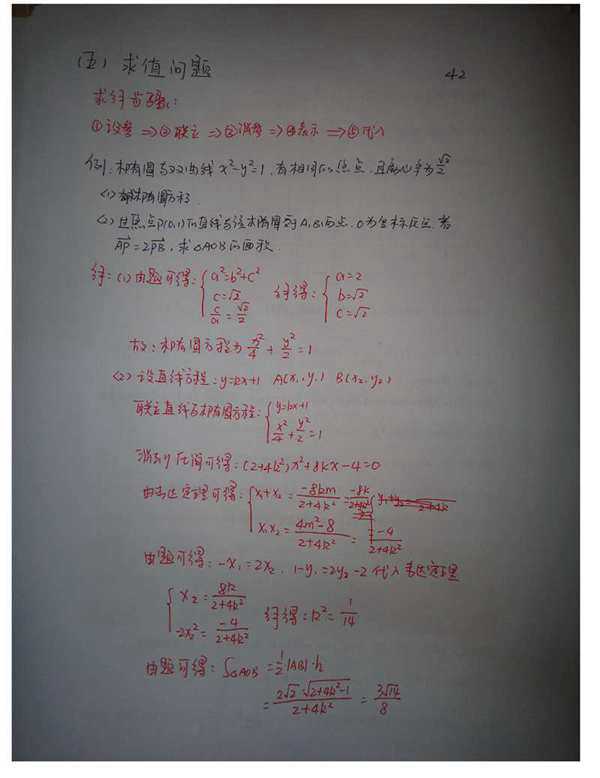 (五) 求值问题
42
求解步骤:
①设参⇒②联立⇒③消参⇒④表示⇒⑤代入
例1. 椭圆与双曲线x²-y²=1,有相同的焦点,且离心率为√2/2
(1) 求椭圆方程.
(2) 过点P(0,1)的直线与该椭圆交于A,B两点,O为坐标原点,若
AP=2PB,求△AOB的面积.
解:(1)由题可得:{a²=b²+c² c=√2 c/a=√2/2 解得:{a=2 b=√2 c=√2
故:椭圆方程为 x²/4 + y²/2 = 1
(2) 设直线方程:y=kx+1 A(x₁,y₁) B(x₂,y₂)
联立直线与椭圆方程:{y=kx+1 x²/4+y²/2=1
消去y化简可得:(2+4k²)x²+8kx-4=0
由韦达定理可得:{x₁+x₂=-8km/2+4k²=-8k/2+4k² x₁x₂=4m²-8/2+4k²=-4/2+4k²
由题可得:-x₁=2x₂, 1-y₁=2y₂-2 代入韦达定理
{x₂=8k/2+4k² -2x₂²=-4/2+4k² 解得:k²=1/14
由题可得:S△AOB=1/2|AB|·h
=2√2·√2+4k²-1/2+4k²=3√14/8